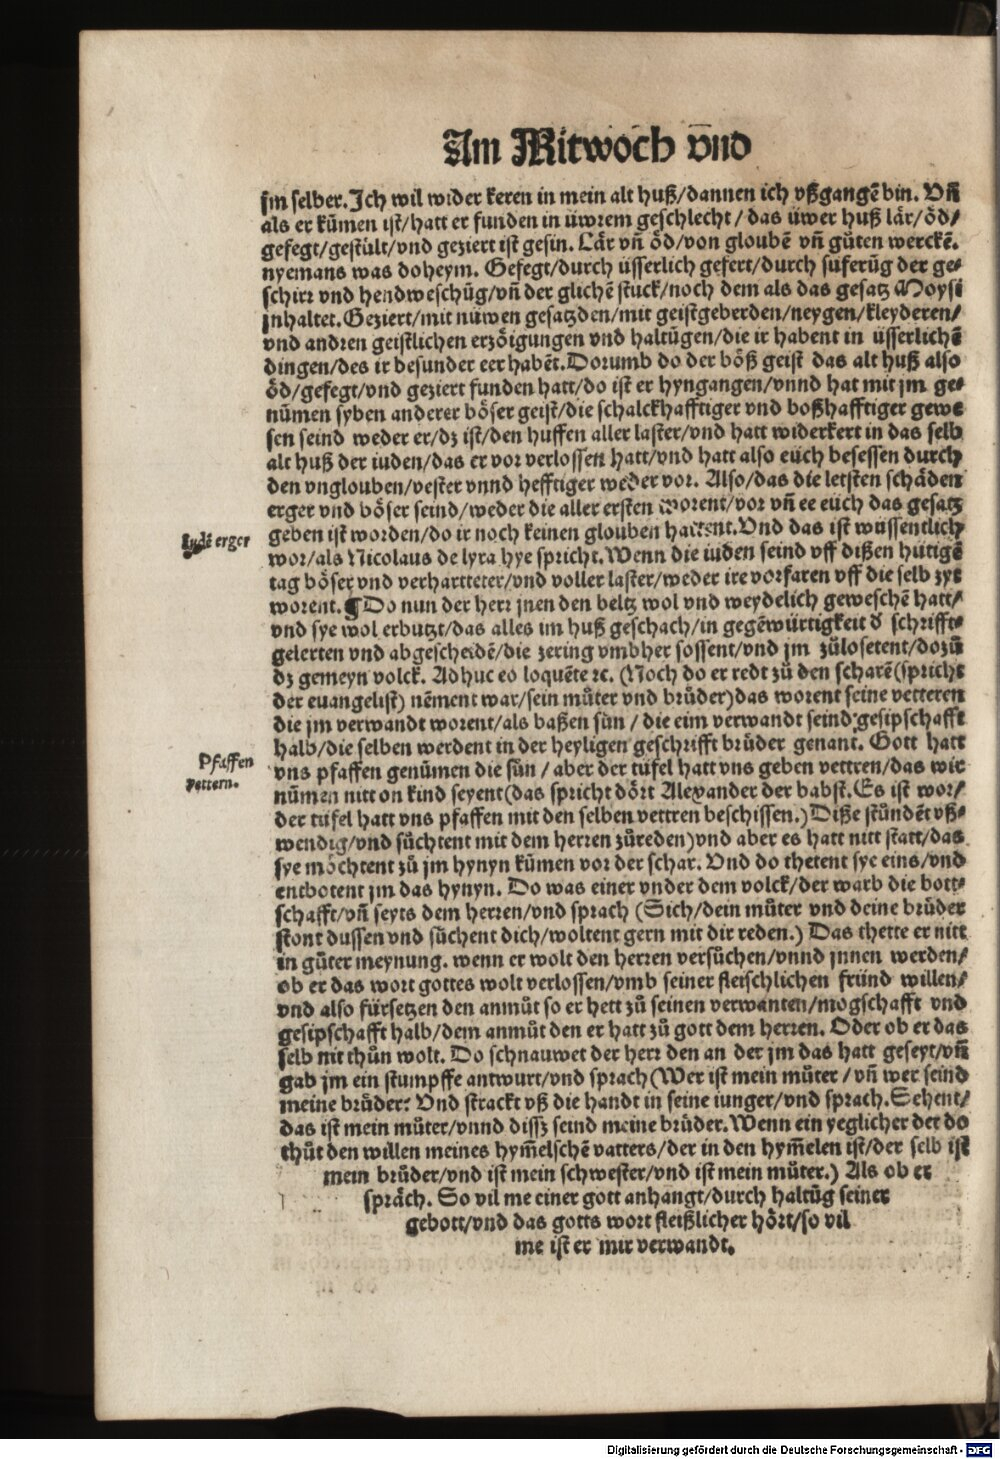 Am Mitwoch vn̄d
jm selber. Ich wil wider keren in mein alt huß/dannen ich vßgangē bin. Vn̄
als er kūmen ist/hatt er funden in üwrem geschlecht/das üwer huß lär/öd/
gefegt/gestült/vnd geziert ist gesin. Lär vn̄ öd/von gloubē vn̄ gůten werckē.
nyemans was doheym. Gefegt/durch üsserlich gefert/durch suferūg der ge⸗
schirr vnd hendweschūg/vn̄ der glichē stuck/noch dem als das gesatz Moysi
jnhaltet. Geziert/mit nüwen gesatzden/mit geistgeberden/neygen/kleyderen/
vnd andren geistlichen erzöigungen vnd haltūgen/die ir habent in üsserlichē
dingen/des ir besunder eer habēt. Dorumb do der böß geist das alt huß also
öd/gefegt/vnd geziert funden hatt/do ist er hyngangen/vnnd hat mit jm ge⸗
nūmen syben anderer böser geist/die schalckhafftiger vnd boßhafftiger gewe
sen seind weder er/dz ist/den huffen aller laster/vnd hatt widerkert in das selb
alt huß der iuden/das er vor verlossen hatt/vnd hatt also eüch besessen durch
den vnglouben/vester vnnd hefftiger weder vor. Also/das die letsten schäden
erger vnd böser seind/weder die aller ersten worent/vor vn̄ ee eüch das gesatz
geben ist worden/do ir noch keinen glouben hattent. Vnd das ist wüssentlich
wor/als Nicolaus de lyra hye spricht. Wenn die iuden seind vff dißen hütigē
tag böser vnd verhartteter/vnd voller laster/weder ire vorfaren vff die selb zyt
worent. ¶Do nun der herr jnen den beltz wol vnd weydelich geweschē hatt/
vnd sye wol erbutzt/das alles im huß geschach/in gegēwürtigkeit d' schrifft⸗
gelerten vnd abgescheidē/die zering vmbher sossent/vnd jm zůlosetent/dozů
dz gemeyn volck. Adhuc eo loquēte ꝛc. (Noch do er redt zů den scharē(spricht
der euangelist) nēment war/sein můter vnd brüder)das worent seine vetteren
die jm verwandt worent/als baßen sün/die eim verwandt seind gesipschafft
halb/die selben werdent in der heyligen geschrifft brüder genant. Gott hatt
vns pfaffen genūmen die sün/aber der tüfel hatt vns geben vettren/das wir
nūmen nitt on kind seyent(das spricht dört Alexander der babst. Es ist wor/
der tüfel hatt vns pfaffen mit den selben vettren beschissen.) Diße stůndēt vß⸗
wendig/vnd sůchtent mit dem herren zůreden)vnd aber es hatt nitt statt/das
sye möchtent zů jm hynyn kūmen vor der schar. Vnd do thetent sye eins/vnd
entbotent jm das hynyn. Do was einer vnder dem volck/der warb die bott⸗
schafft/vn̄ seyts dem herren/vnd sprach (Sich/dein můter vnd deine brüder
stont dussen vnd sůchent dich/woltent gern mit dir reden.) Das thette er nitt
in gůter meynung. wenn er wolt den herren versůchen/vnnd jnnen werden/
ob er das wort gottes wolt verlossen/vmb seiner fleischlichen fründ willen/
vnd also fürsetzen den anmůt so er hett zů seinen verwanten/mogschafft vnd
gesipschafft halb/dem anmůt den er hatt zů gott dem herren. Oder ob er das
selb nit thůn wolt. Do schnauwet der herr den an der jm das hatt geseyt/vn̄
gab jm ein stumpffe antwurt/vnd sprach(Wer ist mein můter/vn̄ wer seind
meine brüder: Vnd strackt vß die handt in seine iunger/vnd sprach. Sehent/
das ist mein můter/vnnd dissz seind meine brüder. Wenn ein yeglicher der do
thůt den willen meines hym̄elschē vatters/der in den hym̄elen ist/der selb ist
mein brůder/vnd ist mein schwester/vnd ist mein můter.) Als ob er
spräch. So vil me einer gott anhangt/durch haltūg seiner
gebott/vnd das gotts wort fleißlicher hört/so vil
me ist er mir verwandt.
Judē erger
Pfaffen
vettern.
Digitalisierung gefördert durch die Deutsche Forschungsgemeinschaft - DFG